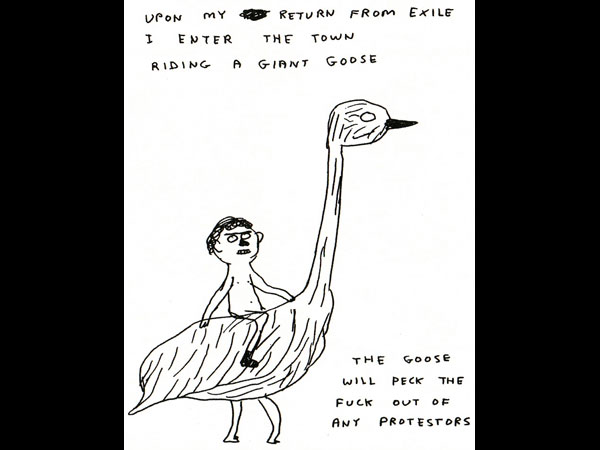 UPON MY RETURN FROM EXILE
I ENTER THE TOWN
RIDING A GIANT GOOSE
THE GOOSE
WILL PECK THE
FUCK OUT OF
ANY PROTESTORS